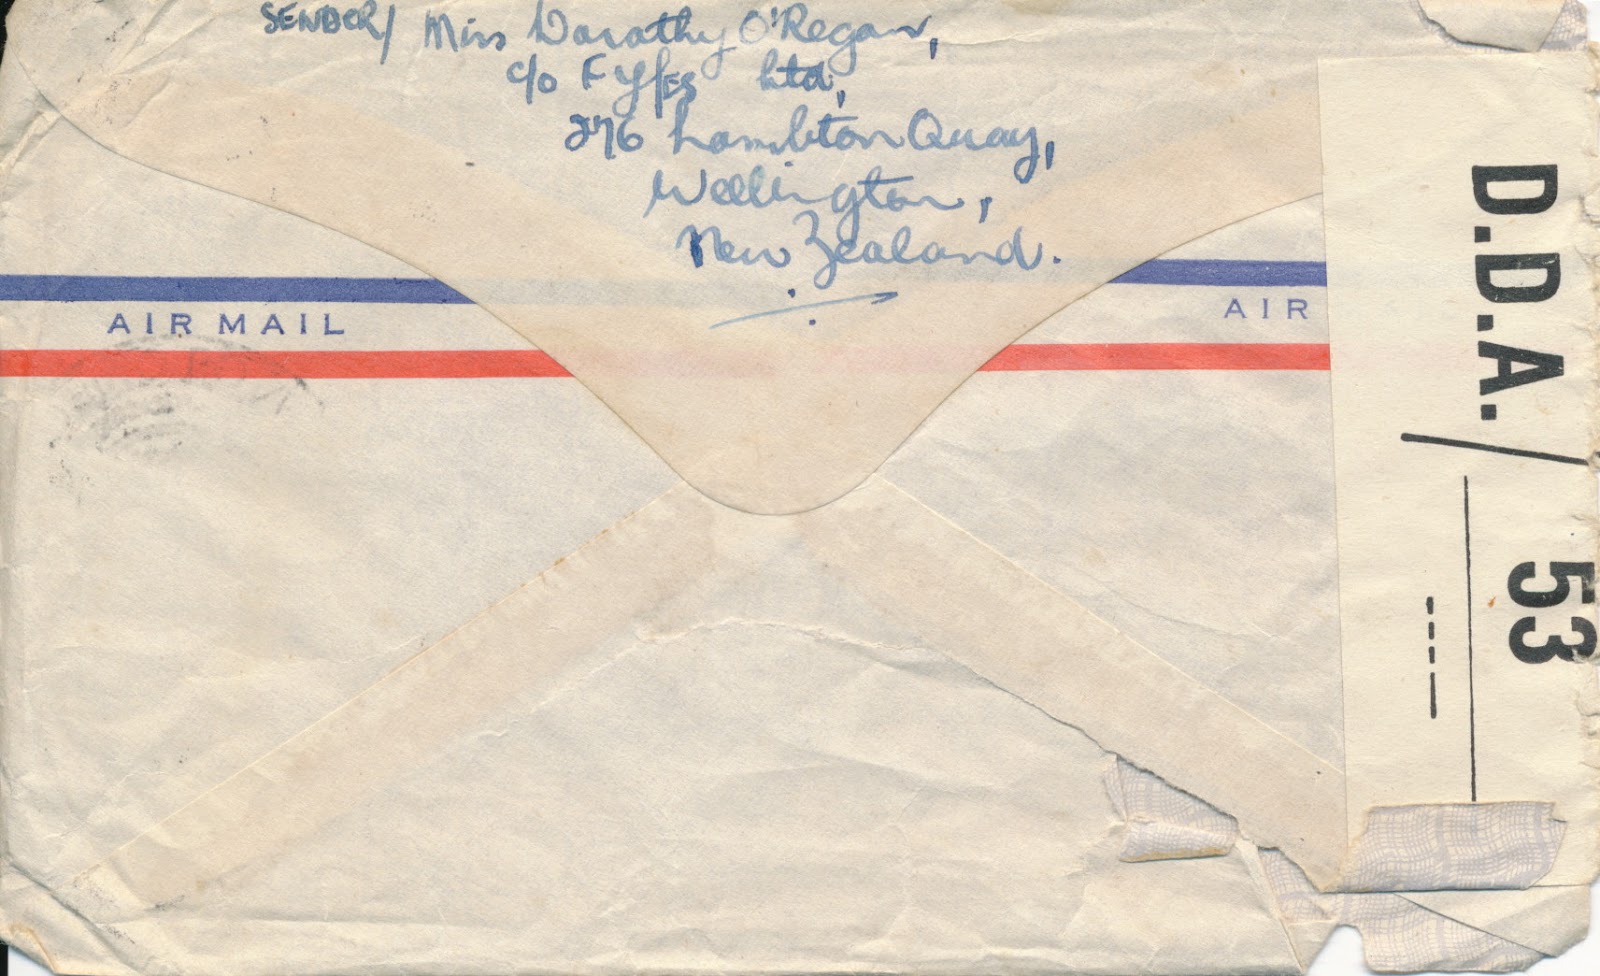 SENDER/ Miss Dorathy O'Regan,
c/o Fyffes Ltd,
276 Lambton Quay,
Wellington,
New Zealand.
AIR MAIL
AIR
D.D.A./
53